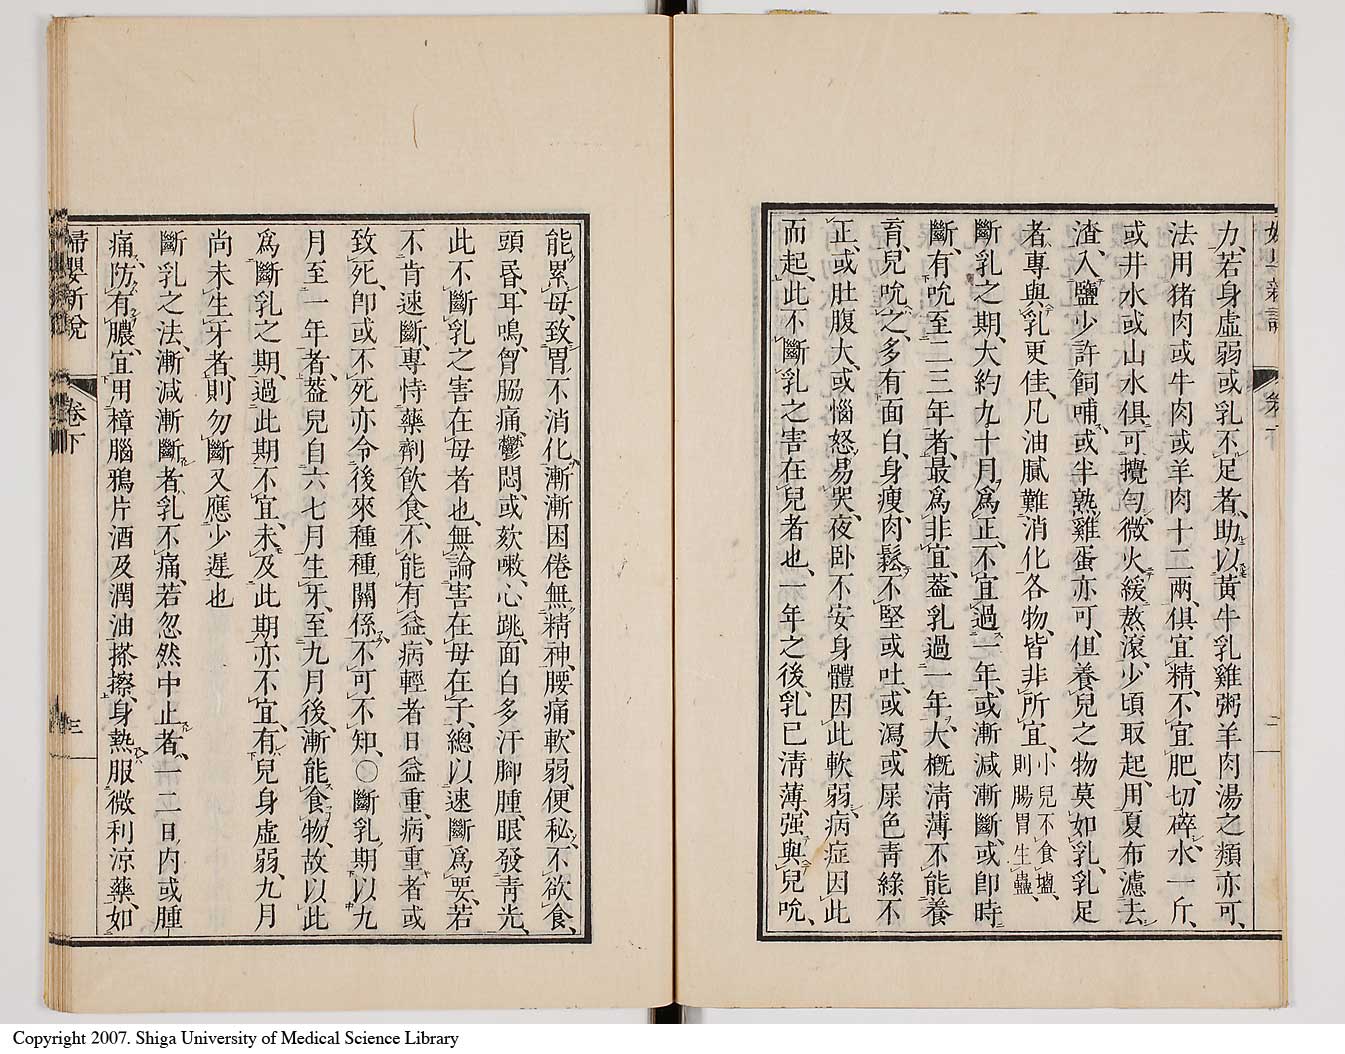 力、若身虛弱或乳不足者、助以黃牛乳雞粥羊肉湯之類亦可、
法用猪肉或牛肉或羊肉十二兩、俱宜精、不宜肥、切碎、水一斤、
或井水或山水俱可攪勻、微火緩熬滾、少頃取起、用夏布濾去
渣、入鹽少許飼哺、或半熟雞蛋亦可、但養兒之物莫如乳、乳足
者、專與乳更佳、凡油膩難消化各物、皆非所宜、小兒不食塩、則腸胃生蟲、
斷乳之期、大約九十月爲正、不宜過一年、或漸減漸斷、或卽時
斷、有吮至二三年者、最爲非宜、葢乳過一年、大概淸薄不能養
育、兒吮之、多有面白、身瘦肉鬆、不堅或吐、或瀉、或屎色靑綠不
正、或肚腹大、或惱怒易哭、夜卧不安身體因此軟弱、病症因此
而起、此不斷乳之害在兒者也、一年之後、乳已淸薄、强與兒吮、
能累母、致胃不消化漸漸困倦無精神、腰痛、軟弱、便秘、不欲食、
頭昏、耳鳴、胷脇痛、鬱悶、或欬嗽、心跳、面白多汗腳腫、眼發靑光、
此不斷乳之害在母者也、無論害在母在子、總以速斷爲要、若
不肯速斷、專恃藥劑飮食、不能有益、病輕者日益重、病重者或
致死、卽或不死亦令後來種種關係、不可不知、○斷乳期以九
月至一年者、葢兒自六七月生牙、至九月後漸能食物、故以此
爲斷乳之期、過此期不宜、未及此期亦不宜、有兒身虛弱、九月
尚未生牙者、則勿斷又應少遲也
斷乳之法、漸減漸斷者、乳不痛、若忽然中止者、一二日內或腫
痛、防有膿、宜用樟腦鴉片酒及潤油搽擦、身熱服微利涼藥、如
婦嬰新說
卷下
三